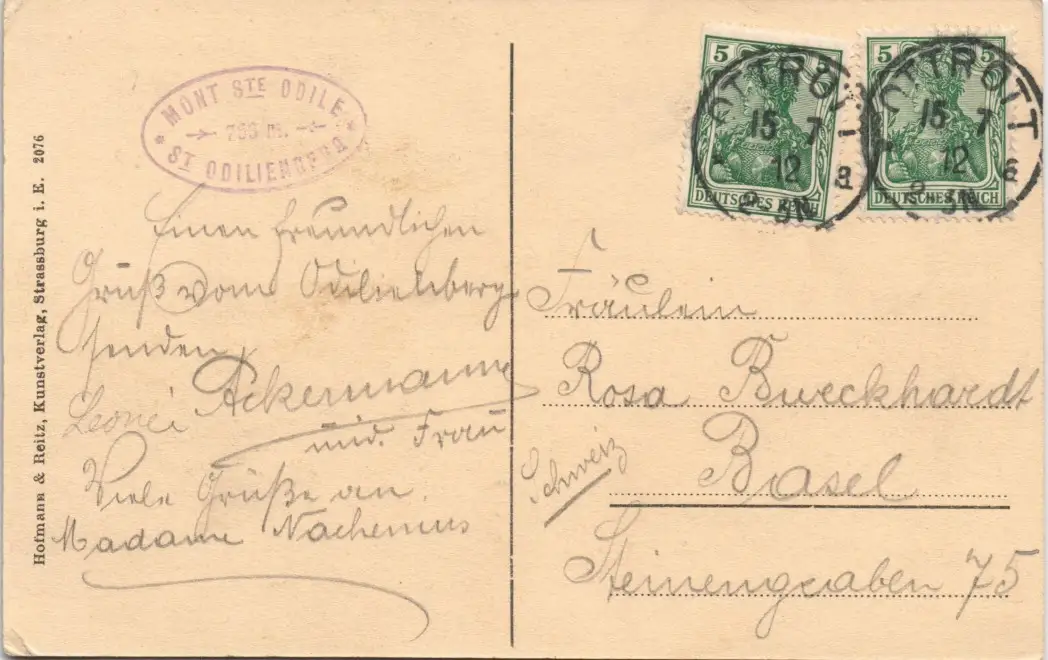 Hofmann & Reitz, Kunstverlag, Strassburg i. E. 2076
MONT STE ODILE
763 m.
ST ODILIENBERG
Einen freundlichen
Gruß vom Odilienberg
senden
Ackermann
und Frau
Viele Grüße an
Madame Nachemus
5
DEUTSCHES REICH
5 5
DEUTSCHES REICH
OTTROTT
15 7
12
2-3N
a
OTTROTT
15 7
12
2-3N
a
Fräulein
Rosa Burckhardt
Basel
Schweiz
Steinengraben 75